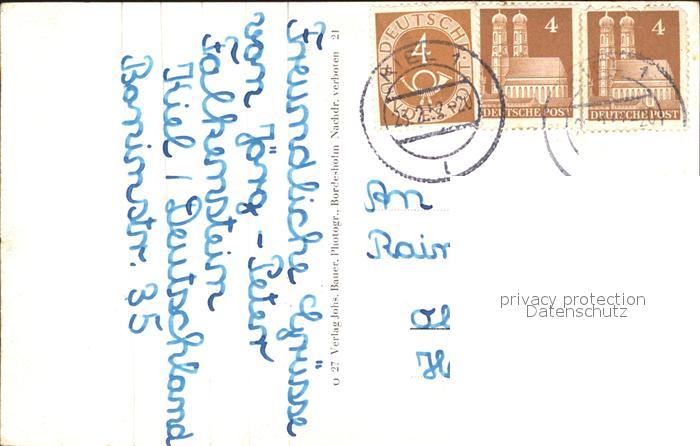 Freundliche Grüsse
von Jörg-Peter
Falkenstein
Kiel / Deutschland
Boninstr. 35
O 27 Verlag Johs. Bauer, Photogr., Bordesholm Nachdr. verboten 21
DEUTSCHE
4
4
DEUTSCHE POST
4
DEUTSCHE POST
KIEL 1
An
Rain
privacy protection
Datenschutz